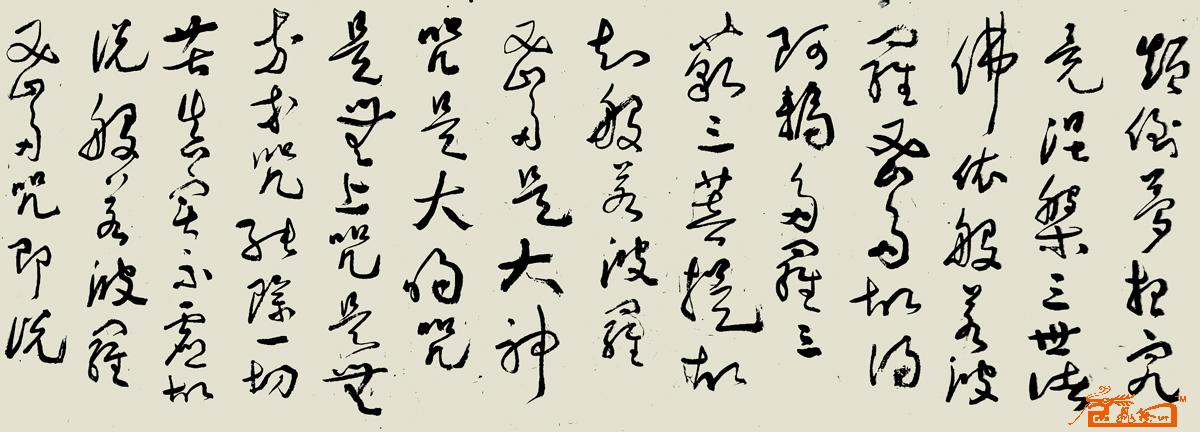 顛倒夢想究
竟涅槃三世諸
佛依般若波
羅蜜多故得
阿耨多羅三
藐三菩提故
知般若波羅
蜜多是大神
咒是大明咒
是無上咒是無
等等咒能除一切
苦真實不虛故
說般若波羅
蜜多咒即說